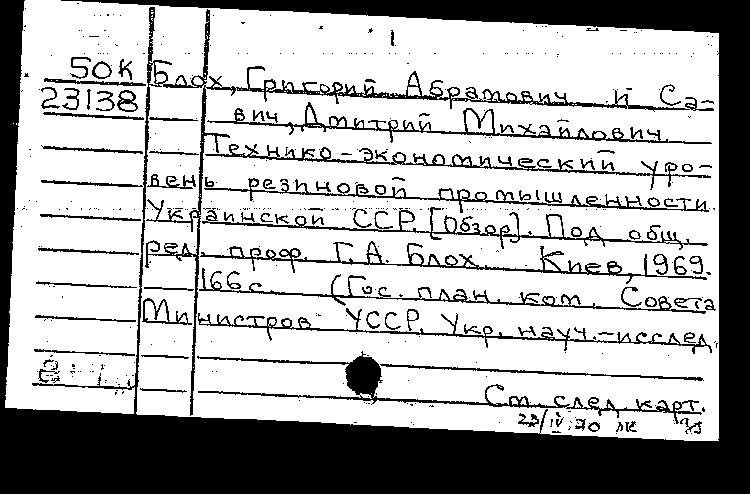 1
50К Блох, Григорий Абрамович и Са-
23138 вич, Дмитрий Михайлович.
Технико-экономический уро-
вень резиновой промышленности
Украинской ССР. [Обзор]. Под общ.
ред. проф. Г. А. Блох. Киев, 1969.
166 с. (Гос. план. ком. Совета
Министров УССР. Укр. науч.-исслед.
См. след. карт.
23/IV.70